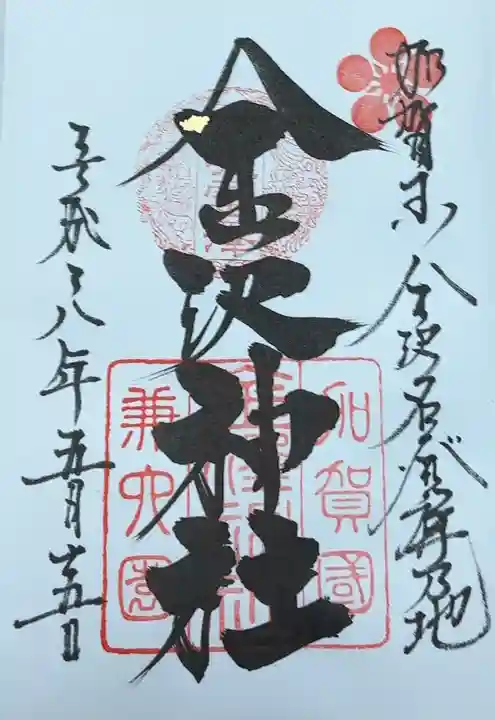 加賀
金沢名発祥乃地
金沢神社
平成二八年五月廿五日
加賀國
金澤神社
兼六園